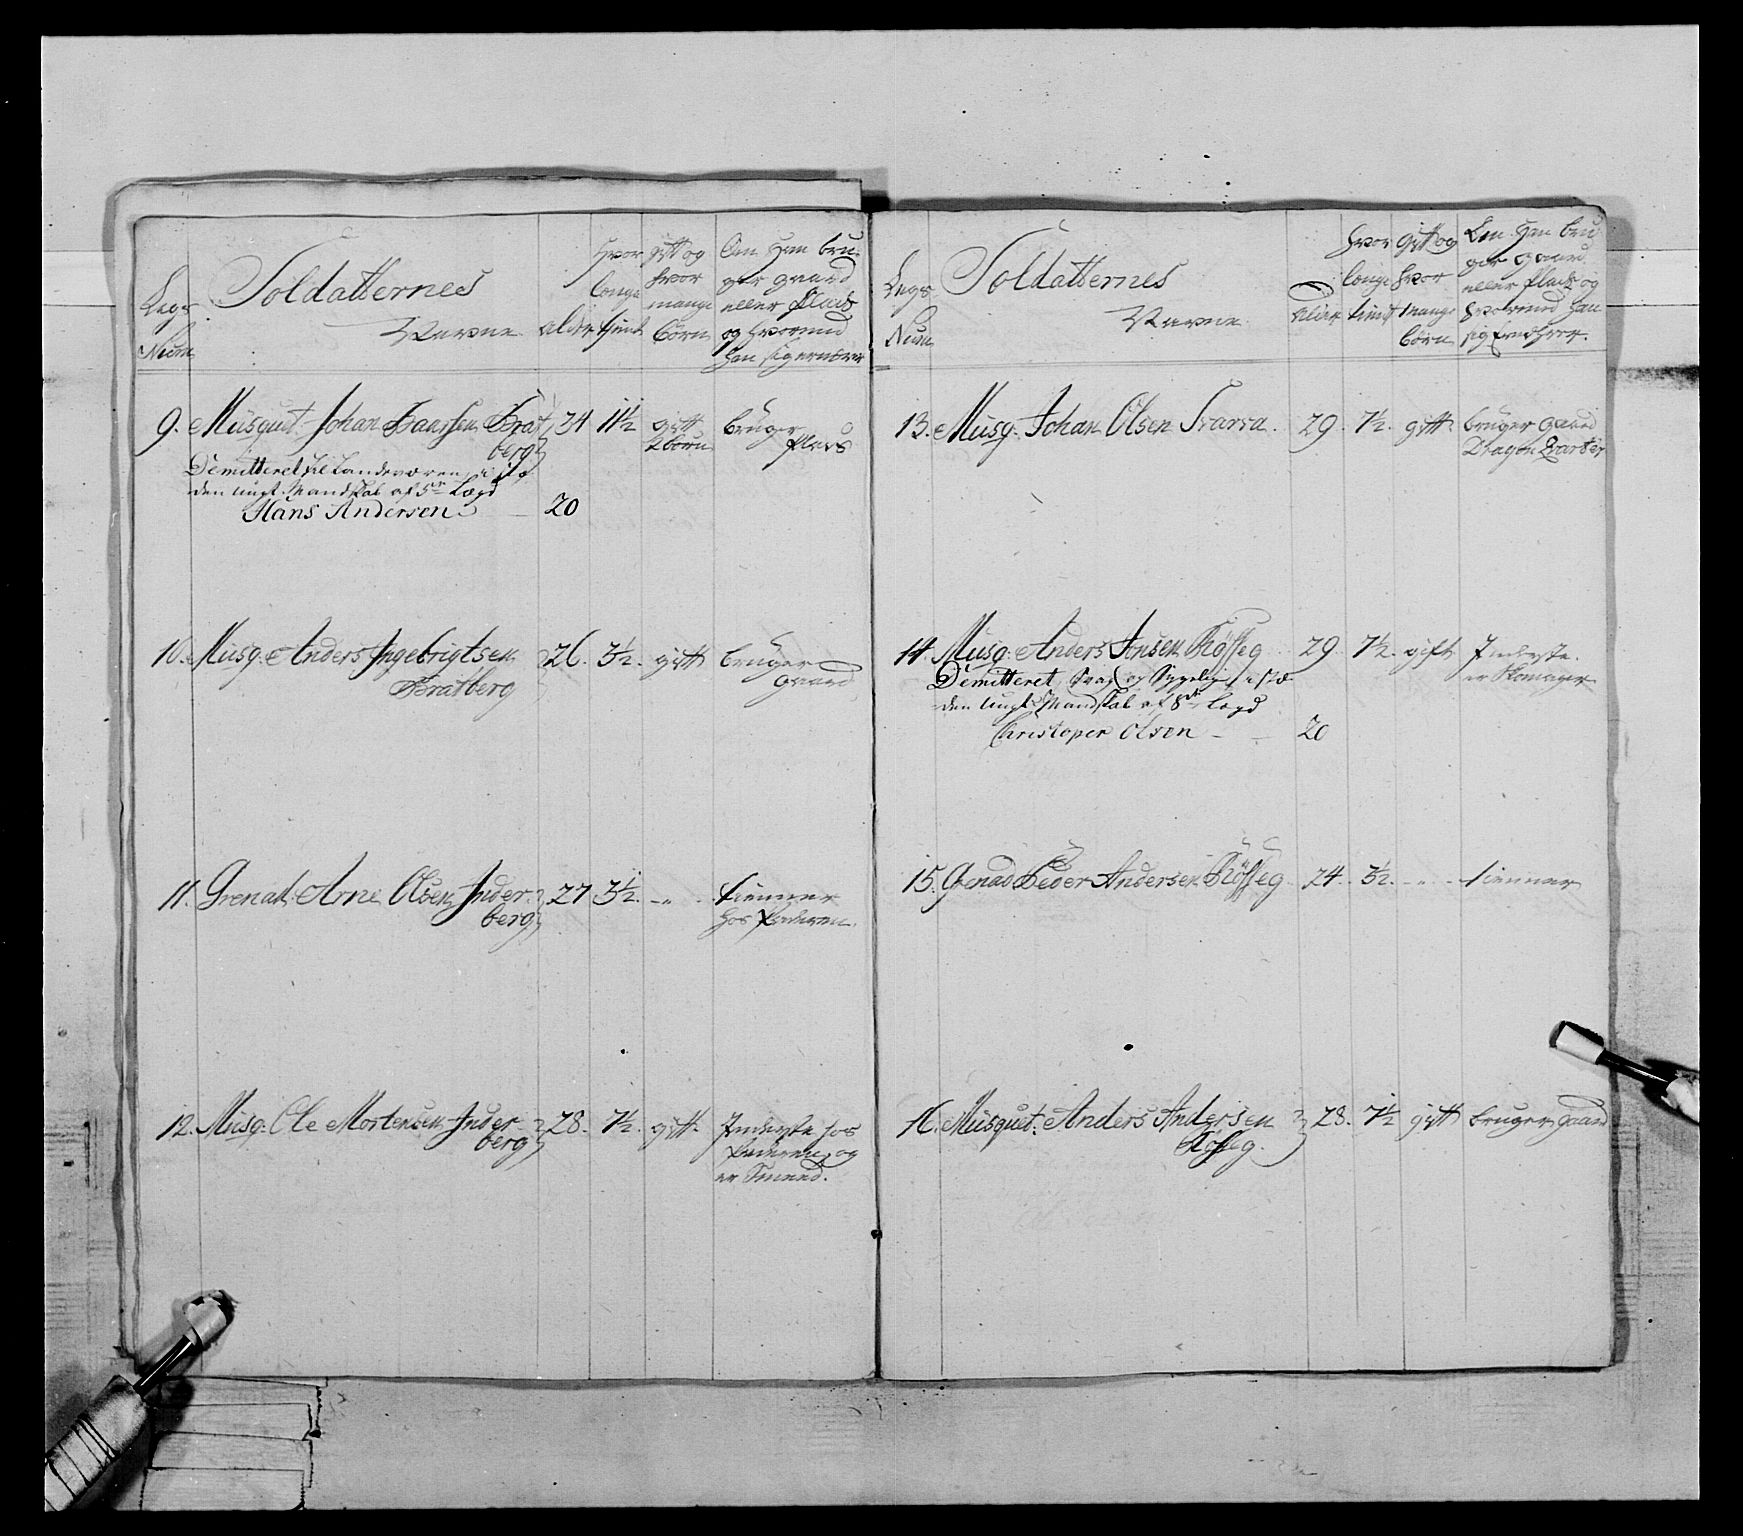 Legs
Num
Soldatternes
Navne
alder
hvor
længe
tient
gift og
hvor
mange
børn
Om han bru-
ger gaard
eller Plads
og hvormed
han sig ernærer
9. Musqut. Johan Baarsen Brat
berg
34 11½ gift
2 børn
bruger
Plads
Demitteret til Landeværen, i stæ
den ungt Mandskab af 5te Lægd
Hans Andersen 20
10. Musq. Anders Ingebrigtsen
Bratberg
26. 3½. gift bruger
gaard
11. Grenad. Arne Olsen Inder-
berg
27 3½. - " - tienner
hos Faderen.
12. Musq. Ole Mortensen Inder-
berg
28. 7½. gift. Inderste hos
Faderen, og
er Smeed.
Legs
Num
Soldatternes
Navne
alder
hvor
længe
tient
gift og
hvor
mange
børn
Om han bru
ger gaard
eller Plads og
hvormed han
sig ernærer.
13. Musq. Johan Olsen Svarva. 29. 7½. gift. bruger gaard
Dragon Qvarter
14. Musq. Anders Ansen Røsseg 29. 7½. gift Inderste.
er Skomager
Demitteret, Svag og Sygelig, i stæ
den ungt Mandskab af 8de Lægd
Christoper Olsen - - 20
15. Grenad Peder Andersen Røsseg 24. 3½. - " - tienner
16. Musquet. Anders Andersen
Røsseg.
28. 7½ gift bruger gaard